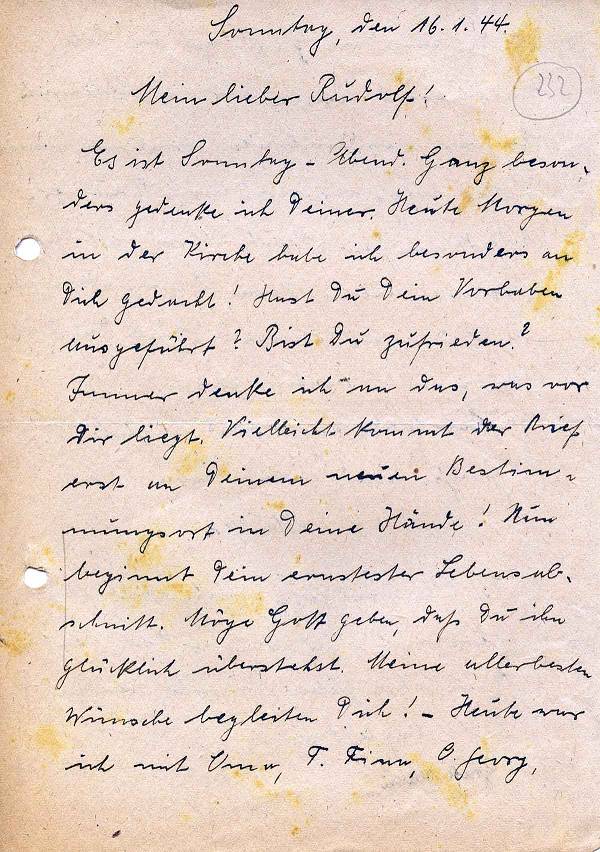 Sonntag, den 16.1.44.
232
Mein lieber Rudolf!
Es ist Sonntag - Abend. Ganz beson-
ders gedenke ich Deiner. Heute Morgen
in der Kirche habe ich besonders an
Dich gedacht! Hast Du Dein Vorhaben
ausgeführt? Bist Du zufrieden?
Immer denke ich an das, was vor
Dir liegt. Vielleicht kommt der Brief
erst an Deinem neuen Bestim-
mungsort in Deine Hände! Nun
beginnt Dein ernstester Lebensab-
schnitt. Möge Gott geben, daß Du ihn
glücklich überstehst. Meine allerbesten
Wünsche begleiten Dich! - Heute war
ich mit Oma, T. Finn, O. Georg,